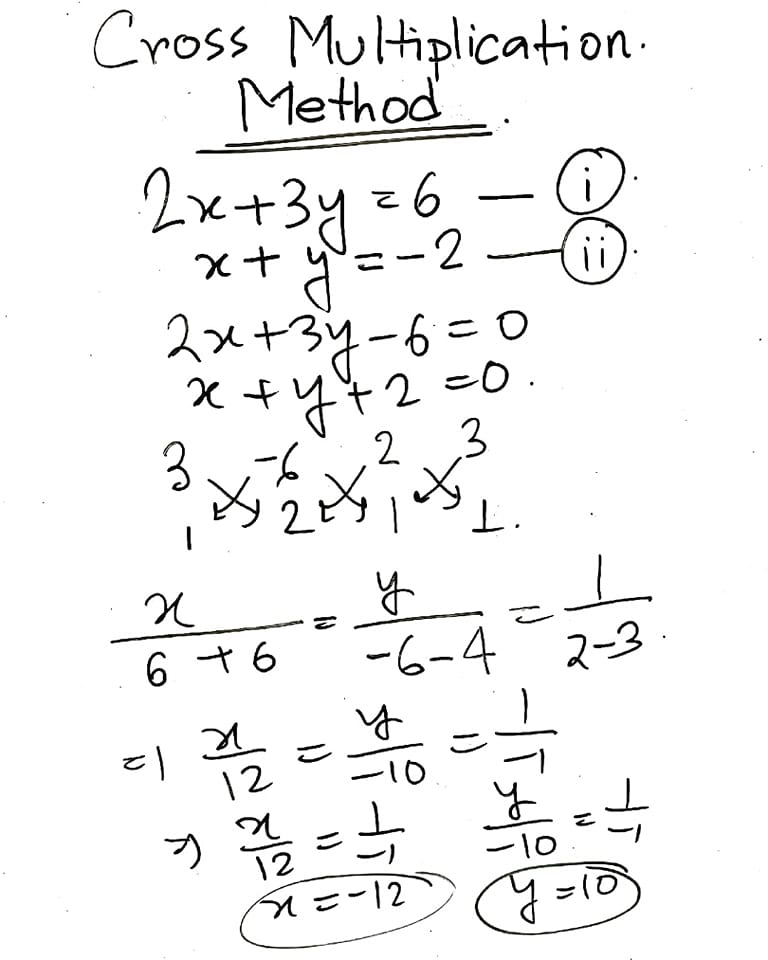 Cross Multiplication.
Method.
2x+3y=6 — (i).
x+y=-2 — (ii).
2x+3y-6=0
x+y+2=0.
3 -6 2 3
1 2 1 1.
x/(6+6) = y/(-6-4) = 1/(2-3).
⇒ x/12 = y/-10 = 1/-1
⇒ x/12 = 1/-1 y/-10 = 1/-1
x=-12 y=10